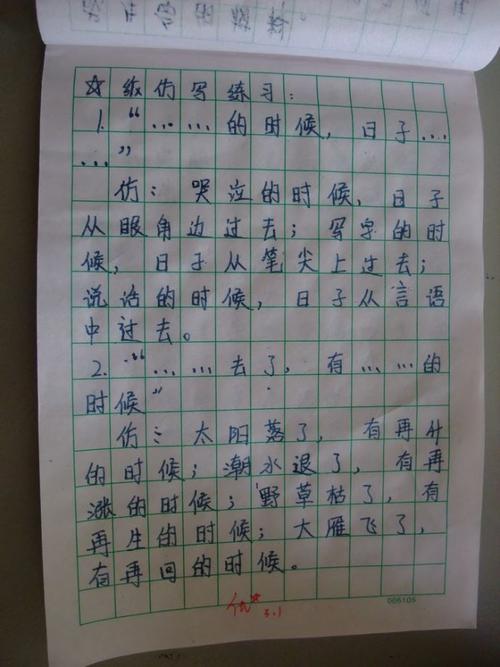 ☆ 练仿写练习：
1. “… …的时候，日子…
…”
仿：哭泣的时候，日子
从眼角边过去；写字的时
候，日子从笔尖上过去；
说话的时候，日子从言语
中过去。
2. “… …去了，有… …的
时候”
仿：太阳落了，有再升
的时候；潮水退了，有再
涨的时候；野草枯了，有
再生的时候；大雁飞了，
有再回的时候。
优☆ 3.1
006105